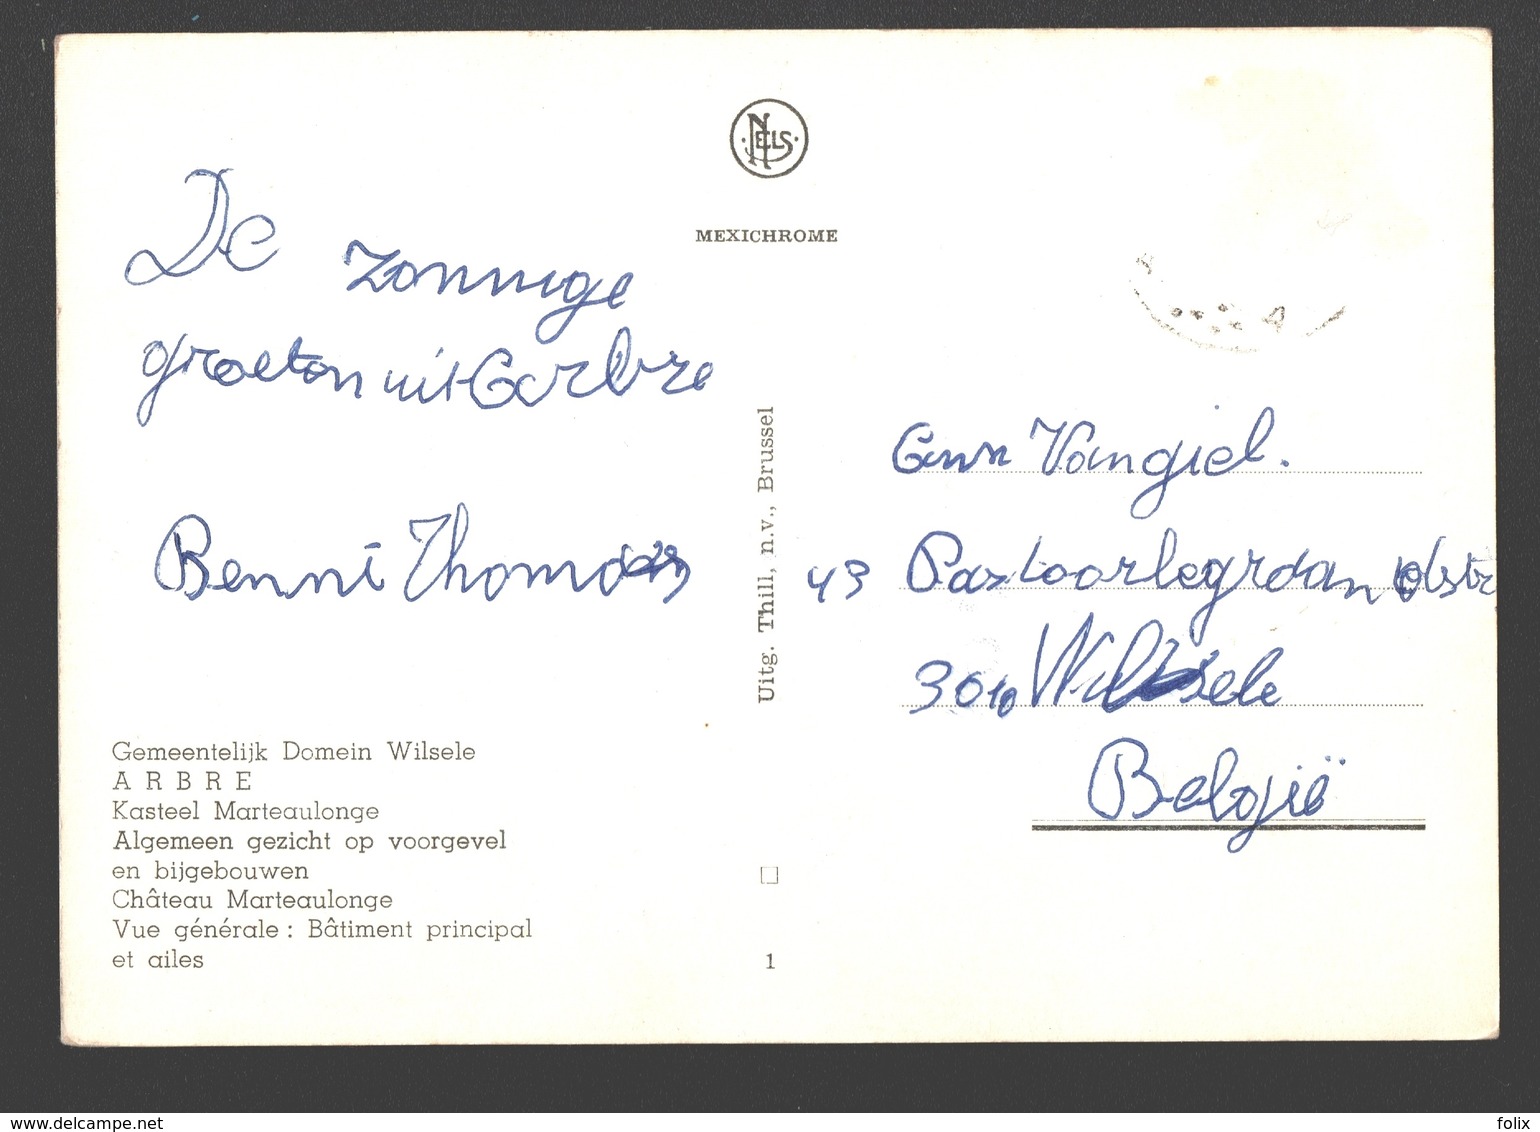 NELS
MEXICHROME
De zonnige
groeten uit Arbre
Benni Thomas
Uitg. Thill, n.v., Brussel
Ann Vangiel.
43 Pastoorlegrdan str
3010 Wilsele
België
Gemeentelijk Domein Wilsele
ARBRE
Kasteel Marteaulonge
Algemeen gezicht op voorgevel
en bijgebouwen
Château Marteaulonge
Vue générale : Bâtiment principal
et ailes
1
delcampe.net
folix